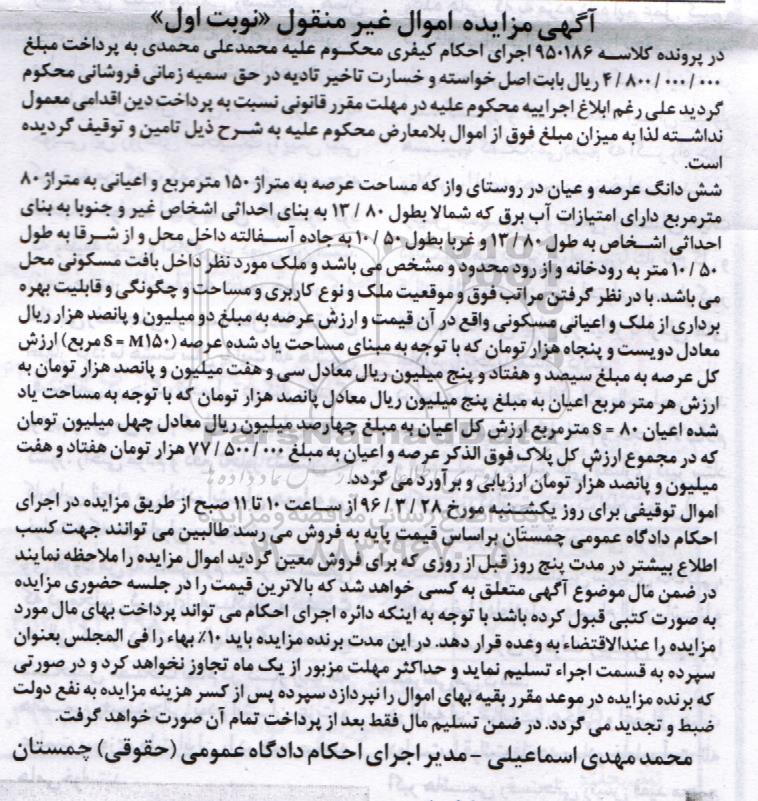 آگهی مزایده اموال غیر منقول «نوبت اول»
در پرونده کلاسه ۹۵۰۱۸۶ اجرای احکام کیفری محکوم علیه محمدعلی محمدی به پرداخت مبلغ
۴/۸۰۰/۰۰۰/۰۰۰ ریال بابت اصل خواسته و خسارت تاخیر تادیه در حق سمیه زمانی فروشانی محکوم
گردید علی رغم ابلاغ اجراییه محکوم علیه در مهلت مقرر قانونی نسبت به پرداخت دین اقدامی معمول
نداشته لذا به میزان مبلغ فوق از اموال بلامعارض محکوم علیه به شرح ذیل تامین و توقیف گردیده
است.
شش دانگ عرصه و عیان در روستای واز که مساحت عرصه به متراژ ۱۵۰ مترمربع و اعیانی به متراژ ۸۰
مترمربع دارای امتیازات آب برق که شمالا بطول ۸۰ / ۱۳ به بنای احداثی اشخاص غیر و جنوبا به بنای
احداثی اشخاص به طول ۸۰ / ۱۳ و غربا بطول ۵۰ / ۱۰ به جاده آسفالته داخل محل و از شرقا به طول
۵۰ / ۱۰ متر به رودخانه و از رود محدود و مشخص می باشد و ملک مورد نظر داخل بافت مسکونی محل
می باشد. با در نظر گرفتن مراتب فوق و موقعیت ملک و نوع کاربری و مساحت و چگونگی و قابلیت بهره
برداری از ملک و اعیانی مسکونی واقع در آن قیمت و ارزش عرصه به مبلغ دو میلیون و پانصد هزار ریال
معادل دویست و پنجاه هزار تومان که با توجه به مبنای مساحت یاد شده عرصه (S = M۱۵۰ مربع) ارزش
کل عرصه به مبلغ سیصد و هفتاد و پنج میلیون ریال معادل سی و هفت میلیون و پانصد هزار تومان به
ارزش هر متر مربع اعیان به مبلغ پنج میلیون ریال معادل پانصد هزار تومان که با توجه به مساحت یاد
شده اعیان S = ۸۰ مترمربع ارزش کل اعیان به مبلغ چهارصد میلیون ریال معادل چهل میلیون تومان
که در مجموع ارزش کل پلاک فوق الذکر عرصه و اعیان به مبلغ ۷۷/۵۰۰/۰۰۰ هزار تومان هفتاد و هفت
میلیون و پانصد هزار تومان ارزیابی و برآورد می گردد.
اموال توقیفی برای روز یکشنبه مورخ ۹۶/۳/۲۸ از ساعت ۱۰ تا ۱۱ صبح از طریق مزایده در اجرای
احکام دادگاه عمومی چمستان براساس قیمت پایه به فروش می رسد طالبین می توانند جهت کسب
اطلاع بیشتر در مدت پنج روز قبل از روزی که برای فروش معین گردید اموال مزایده را ملاحظه نمایند
در ضمن مال موضوع آگهی متعلق به کسی خواهد شد که بالاترین قیمت را در جلسه حضوری مزایده
به صورت کتبی قبول کرده باشد با توجه به اینکه دائره اجرای احکام می تواند پرداخت بهای مال مورد
مزایده را عندالاقتضاء به وعده قرار دهد. در این مدت برنده مزایده باید ۱۰٪ بهاء را فی المجلس بعنوان
سپرده به قسمت اجراء تسلیم نماید و حداکثر مهلت مزبور از یک ماه تجاوز نخواهد کرد و در صورتی
که برنده مزایده در موعد مقرر بقیه بهای اموال را نپردازد سپرده پس از کسر هزینه مزایده به نفع دولت
ضبط و تجدید می گردد. در ضمن تسلیم مال فقط بعد از پرداخت تمام آن صورت خواهد گرفت.
محمد مهدی اسماعیلی - مدیر اجرای احکام دادگاه عمومی (حقوقی) چمستان